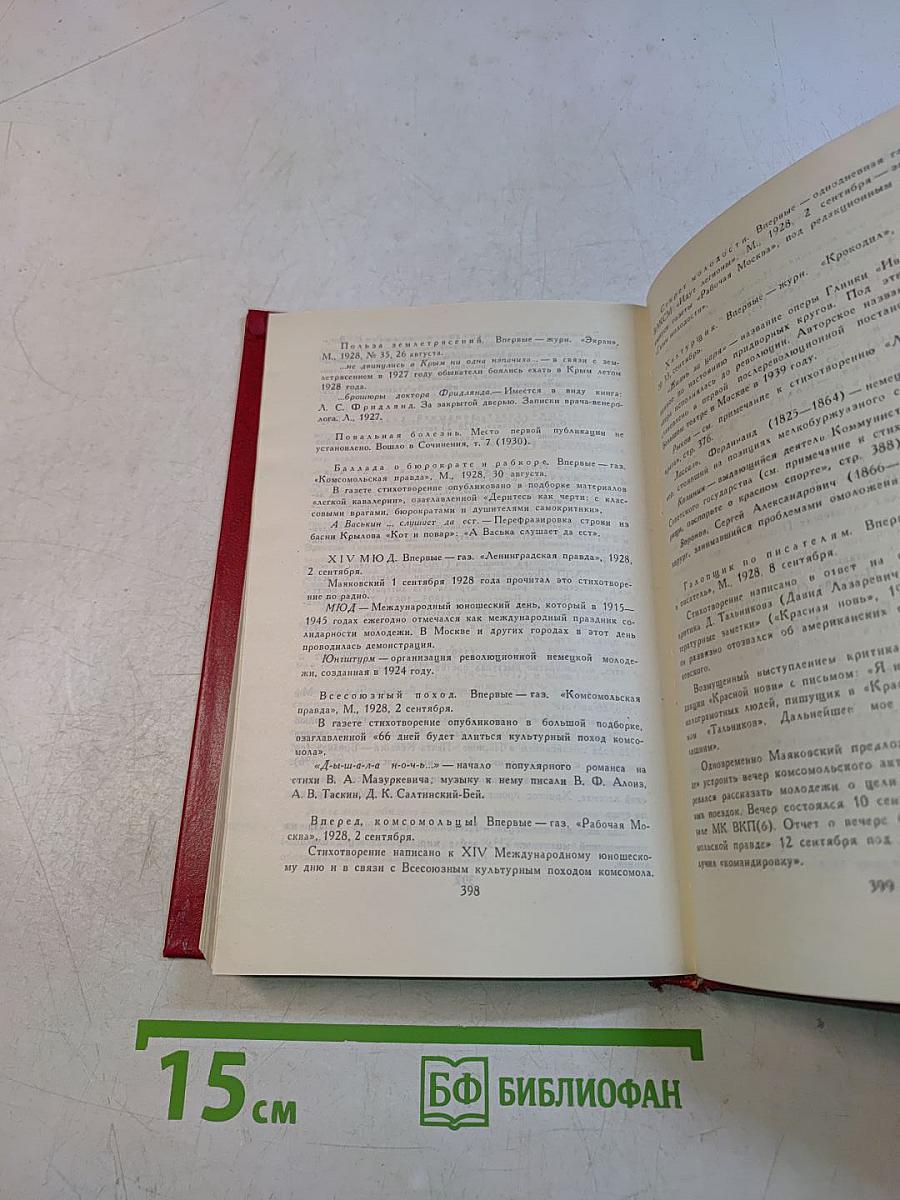 Польза землетрясений. Впервые — журн. «Экран»,
М., 1928, № 35, 26 августа.
...не двинулись в Крым ни одна нэпачиха... — в связи с зем-
летрясением в 1927 году обыватели боялись ехать в Крым летом
1928 года.
...брошюры доктора Фридлянда.— Имеется в виду книга:
Л. С. Фридлянд. За закрытой дверью. Записки врача-венеро-
лога. Л., 1927.
Повальная болезнь. Место первой публикации не
установлено. Вошло в Сочинения, т. 7 (1930).
Баллада о бюрократе и рабкоре. Впервые — газ.
«Комсомольская правда», М., 1928, 30 августа.
В газете стихотворение опубликовано в подборке материалов
«легкой кавалерии», озаглавленной «Деритесь как черти: с клас-
совыми врагами, бюрократами и душителями самокритики».
А Васькин ... слушает да ест.— Перефразировка строки из
басни Крылова «Кот и повар»: «А Васька слушает да ест».
XIV МЮД. Впервые — газ. «Ленинградская правда», 1928,
2 сентября.
Маяковский 1 сентября 1928 года прочитал это стихотворе-
ние по радио.
МЮД — Международный юношеский день, который в 1915—
1945 годах ежегодно отмечался как международный праздник со-
лидарности молодежи. В Москве и других городах в этот день
проводилась демонстрация.
Юнгштурм — организация революционной немецкой молоде-
жи, созданная в 1924 году.
Всесоюзный поход. Впервые — газ. «Комсомольская
правда», М., 1928, 2 сентября.
В газете стихотворение опубликовано в большой подборке,
озаглавленной «66 дней будет длиться культурный поход комсо-
мола».
«Д-ы-ш-а-л-а н-о-ч-ь...» — начало популярного романса на
стихи В. А. Мазуркевича, музыку к нему писали В. Ф. Алоиз,
А. В. Таскин, Д. К. Сартинский-Бей.
Вперед, комсомольцы! Впервые — газ. «Рабочая Мо-
сква», 1928, 2 сентября.
Стихотворение написано к XIV Международному юношеско-
му дню и в связи с Всесоюзным культурным походом комсомола.
398
Секрет молодости. Впервые — однодневная га
«Идут легионы», М., 1928, 2 сентября —
газеты «Рабочая Москва», под редакционным
молодости».
Халтурщик. Впервые — журн. «Крокодил»,
сентябрь.
— название оперы Глинки «Ив
по настоянию придворных кругов. Под эти
исполнялась до революции. Авторское назван
в первой послереволюционной постан
театре в Москве в 1939 году.
Рыков — см. примечание к стихотворению «Л
стр. 376.
Лассаль, Фердинанд (1825—1864) — немец
стоявший на позициях мелкобуржуазного с
Калинин — выдающийся деятель Коммунист
Советского государства (см. примечание к стих
рапорте о красном спорте», стр. 388)
Воронов, Сергей Александрович (1866—
хирург, занимавшийся проблемами омоложени
Галопщик по писателям. Впер
и писатель», М., 1928, 8 сентября.
Стихотворение написано в ответ на с
критика Д. Тальникова (Давид Лазаревич
ературные заметки» («Красная новь», 19
развязно отозвался об американских с
овского.
Возмущенный выступлением критика
дакции «Красной нови» с письмом: «Я и
малограмотных людей, пишущих в «Крас
«Тальников». Дальнейшее мое
лишним».
Одновременно Маяковский предлож
устроить вечер комсомольского акт
ревался рассказать молодежи о цели
поездок. Вечер состоялся 10 сен
МК ВКП(б). Отчет о вечере б
мольской правде» 12 сентября под
лучил «командировку».
399
15 см
БФ БИБЛИОФАН